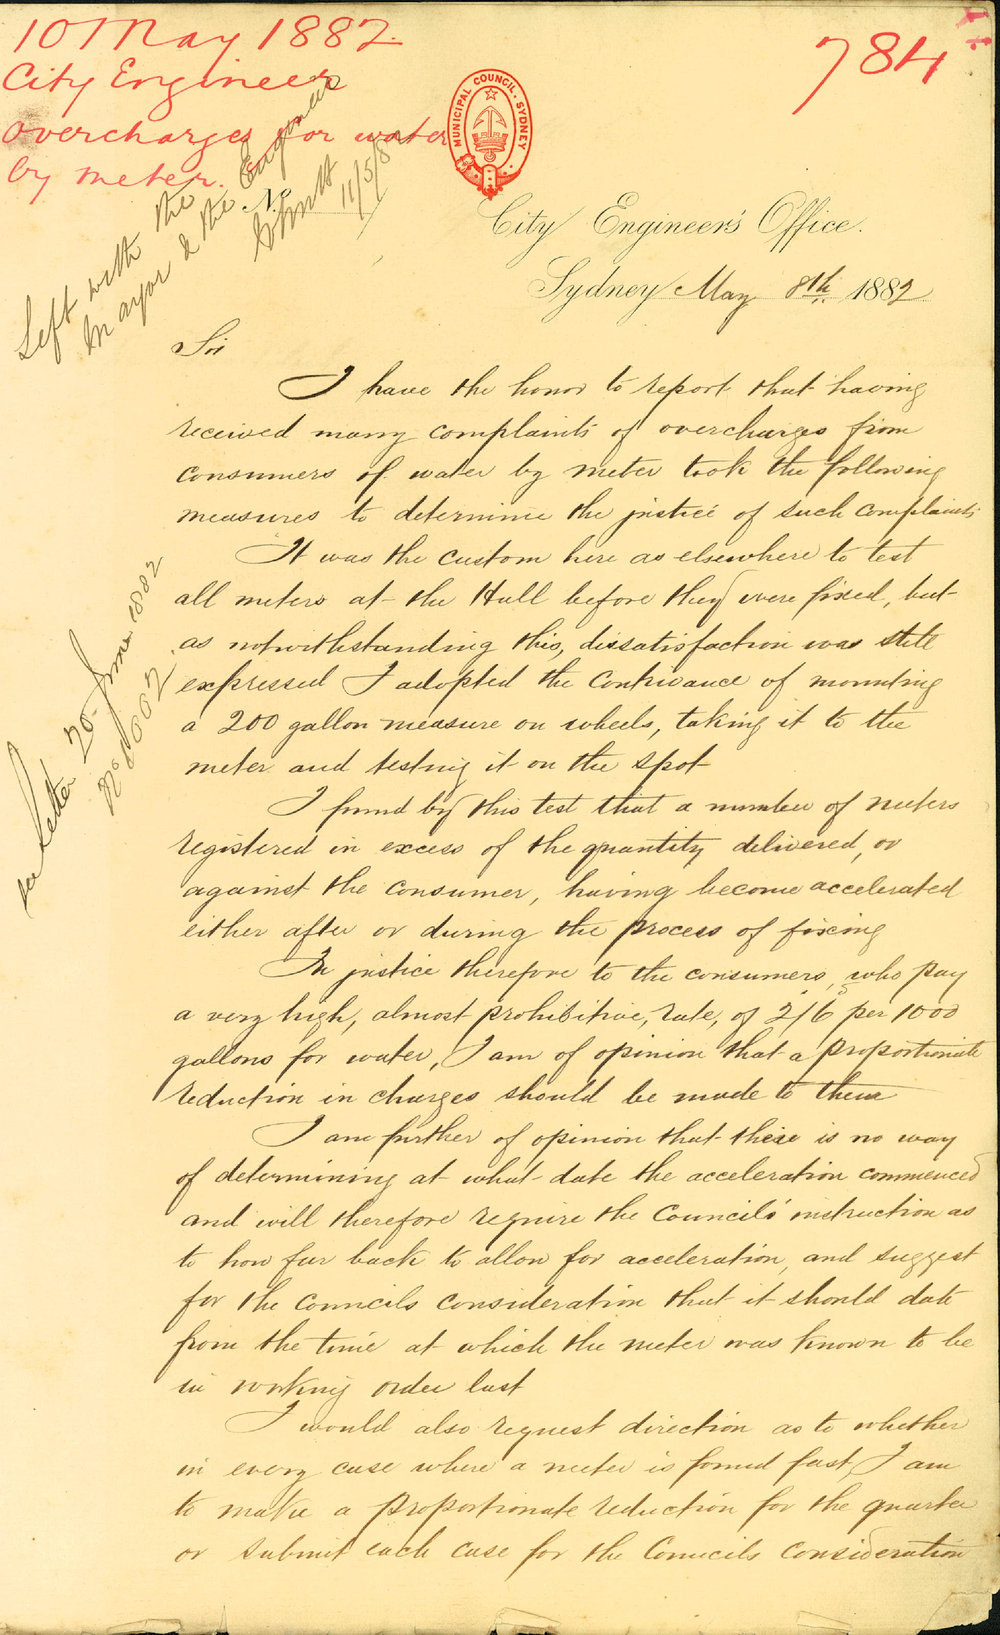 10 May 1882.
City Engineer
overcharges for water
by meter.
784
MUNICIPAL COUNCIL. SYDNEY
Left with the
Mayor & the Engineer
11/5/82
No
City Engineer's Office.
Sydney May 8th 1882
Sir
I have the honor to report that having
received many complaints of overcharges from
consumers of water by meter took the following
measures to determine the justice of such complaints
It was the custom here as elsewhere to test
all meters at the Hall before they were fixed, but
as notwithstanding this, dissatisfaction was still
expressed I adopted the contrivance of mounting
a 200 gallon measure on wheels, taking it to the
meter and testing it on the spot
see Letter 20 June 1882
No
I found by this test that a number of meters
registered in excess of the quantity delivered, or
against the consumer, having become accelerated
either after or during the process of fixing
In justice therefore to the consumers, who pay
a very high, almost prohibitive, rate, of 2/6 per 1000
gallons for water, I am of opinion that a proportionate
reduction in charges should be made to them
I am further of opinion that there is no way
of determining at what date the acceleration commenced
and will therefore require the Councils' instruction as
to how far back to allow for acceleration, and suggest
for the Councils consideration that it should date
from the time at which the meter was known to be
in working order last
I would also request direction as to whether
in every case where a meter is found fast, I am
to make a proportionate reduction for the quarter
or submit each case for the Councils consideration